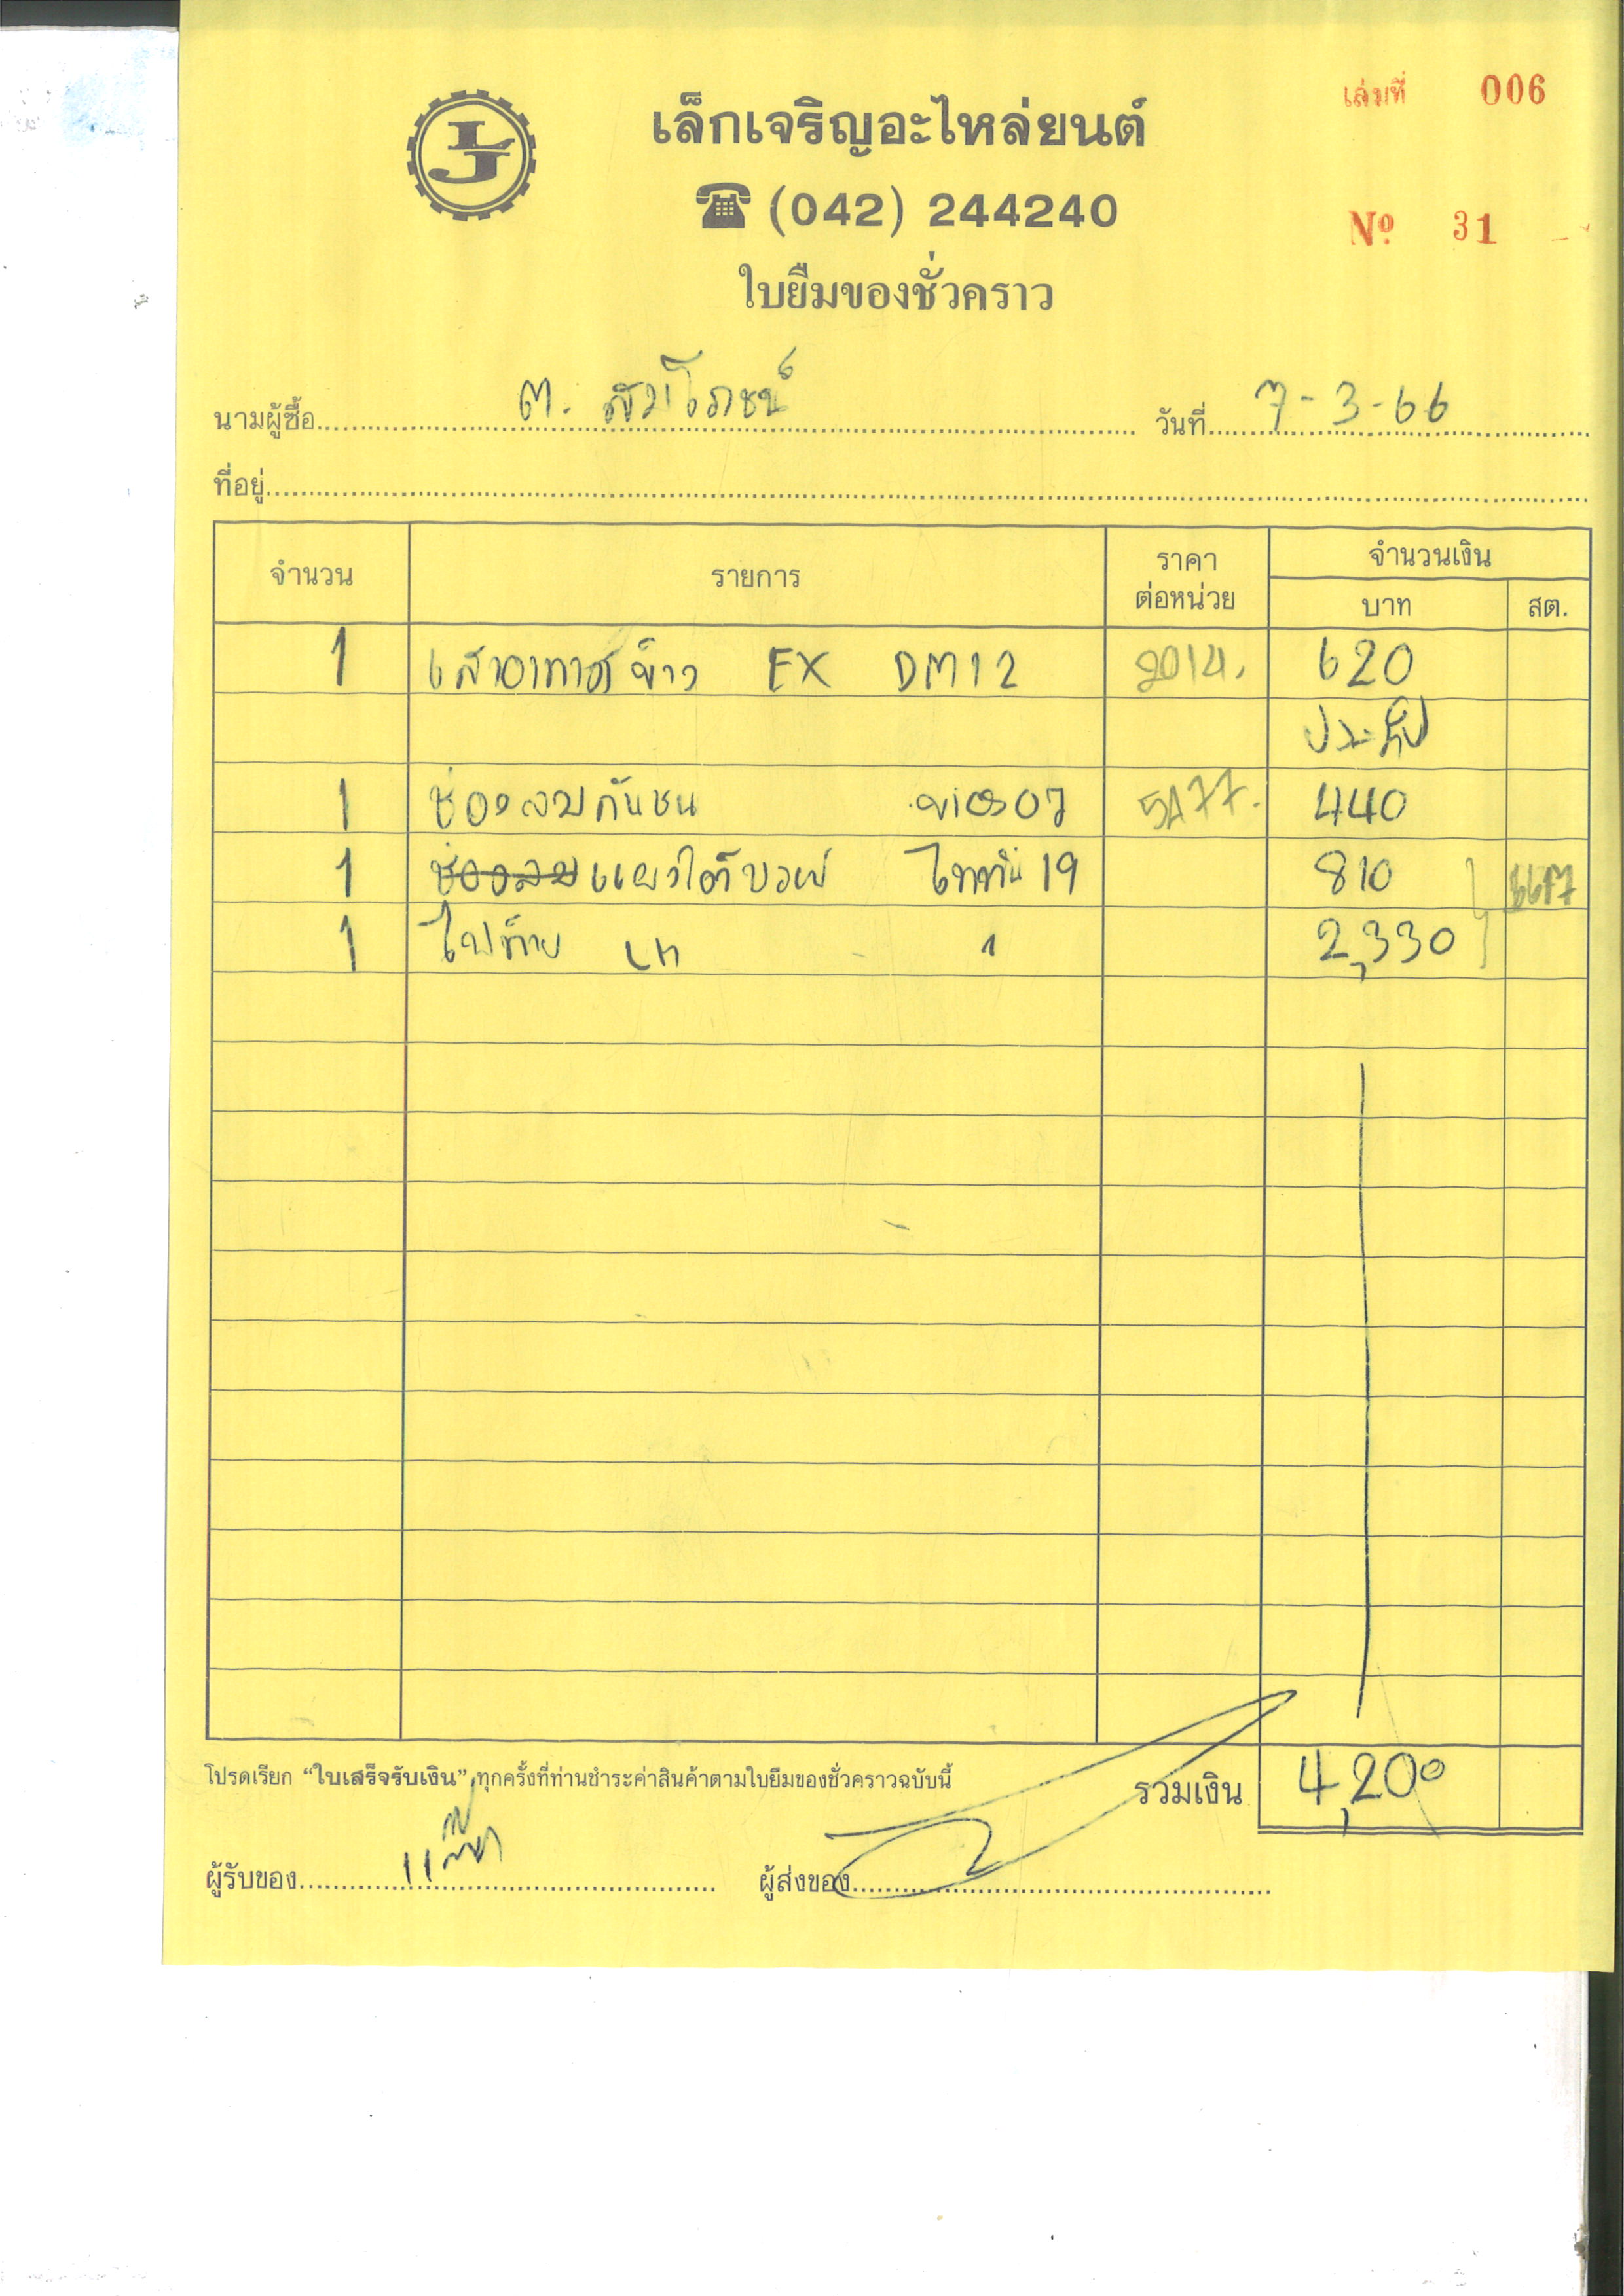 เล่มที่ 006
LJ
เล็กเจริญอะไหล่ยนต์
(042) 244240
Nº 31
ใบยืมของชั่วคราว
นามผู้ซื้อ ต. สัมโภชน์ วันที่ 7-3-66
ที่อยู่
จำนวน รายการ ราคา ต่อหน่วย จำนวนเงิน
บาท สต.
1 EX DM12 2014. 620
1 ช่องลมกันชน vios 07 5A77. 440
1 ช่องลม 19 810
1 ไฟท้าย LH 2,330
โปรดเรียก “ใบเสร็จรับเงิน” ทุกครั้งที่ท่านชำระค่าสินค้าตามใบยืมของชั่วคราวฉบับนี้ รวมเงิน 4,200
ผู้รับของ ผู้ส่งของ